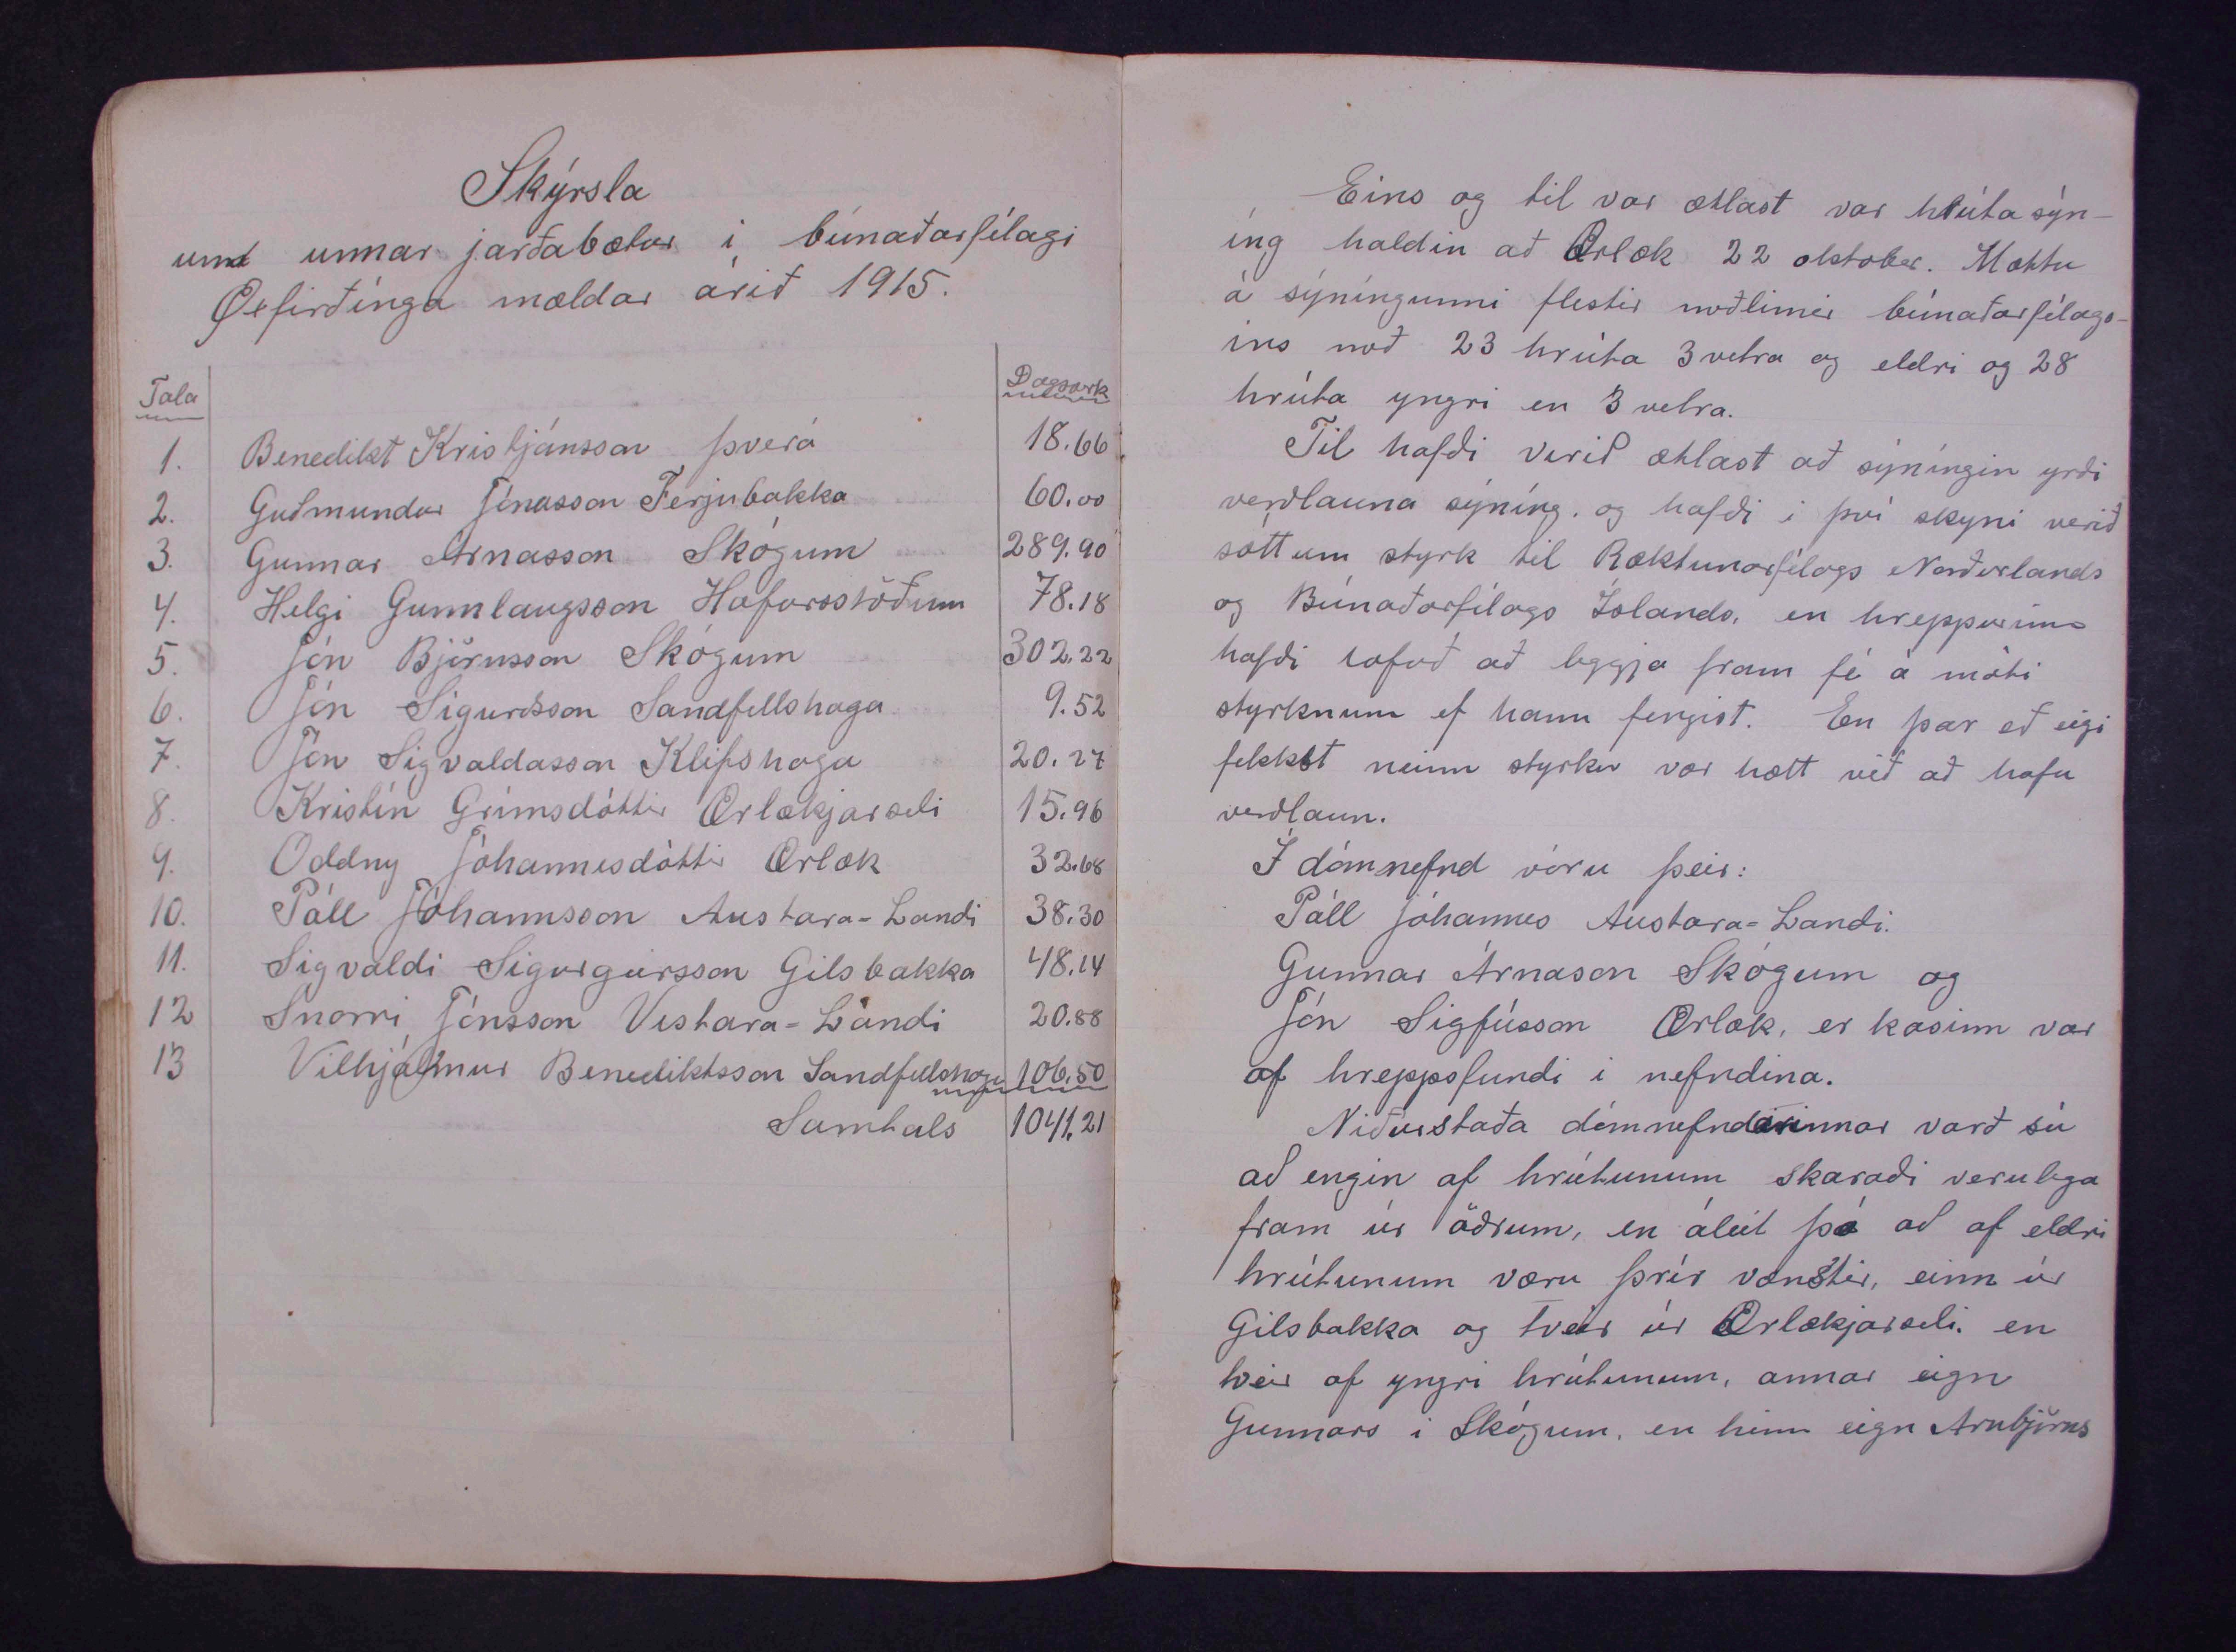 Skýrsla
um unnar jarðabætur í búnaðarfélagi
Øxfirðinga mældar árið 1915.
Tala Dagsverk
1. Benedikt Kristjánsson Þverá 18.66
2. Guðmundur Jónasson Ferjubakka 60.00
3. Gunnar Árnasson Skógum 289.90
4. Helgi Gunnlaugsson Hafursstöðum 78.18
5. Jón Björnsson Skógum 302.22
6. Jón Sigurðsson Sandfellshaga 9.52
7. Jón Sigvaldasson Klifshaga 20.27
8. Kristín Grímsdóttir Ærlækjarseli 15.96
9. Oddny Jóhannesdóttir Ærlæk 32.68
10. Páll Jóhannsson Austara-Landi 38.30
11. Sigvaldi Sigurgeirsson Gilsbakka 48.14
12 Snorri Jónsson Vestara-Landi 20.88
13 Vilhjálmur Benediktsson Sandfellshaga 106.50
Samtals 1041.21
Eins og til var ætlast var hrútasýn-
íng haldin að Ærlæk 22 oktober. Mættu
á sýníngunni flestir meðlimir búnaðarfélags-
ins með 23 hrúta 3 vetra og eldri og 28
hrúta yngri en 3 vetra.
Til hafði verið ætlast að sýníngin yrði
verðlauna sýníng. og hafði í því skyni verið
sótt um styrk til Ræktunarfélags Norðurlands
og Búnaðarfélags Íslands, en hreppurinn
hafði lofað að leggja fram fé á móti
styrknum ef hann fengist. En þar eð eigi
fekkst neinn styrkur var hætt við að hafa
verðlaun.
Í dómnefnd vóru þeir:
Páll Jóhannes Austara-Landi.
Gunnar Árnason Skógum og
Jón Sigfússon Ærlæk, er kosinn var
af hreppsfundi í nefndina.
Niðurstaða dómnefndarinnar varð sú
að engin af hrútunum skaraði verulega
fram úr öðrum, en áleit þó að af eldri
hrútunum væru þrír vænstir, einn úr
Gilsbakka og tveir úr Ærlækjarseli. en
tveir af yngri hrútunum, annar eign
Gunnars í Skógum, en hinn eign Arnbjörns